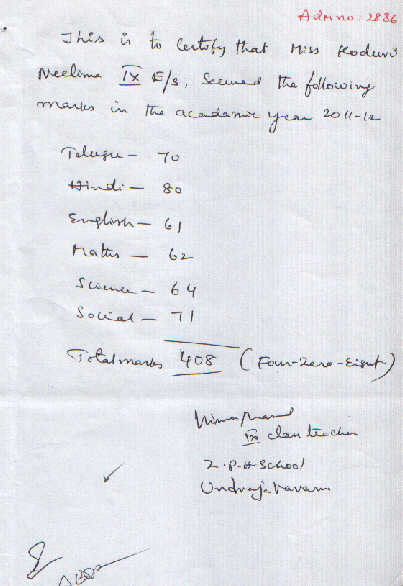 Adm no. 2886
This is to Certify that Miss Koduri
Neelima IX E/s, Secured the following
marks in the academic year 2011-12
Telugu - 70
Hindi - 80
English - 61
Maths - 62
Science - 64
Social - 71
Total marks 408 (Four-Zero-Eight)
IX class teacher
Z.P.H School
Undrajavaram